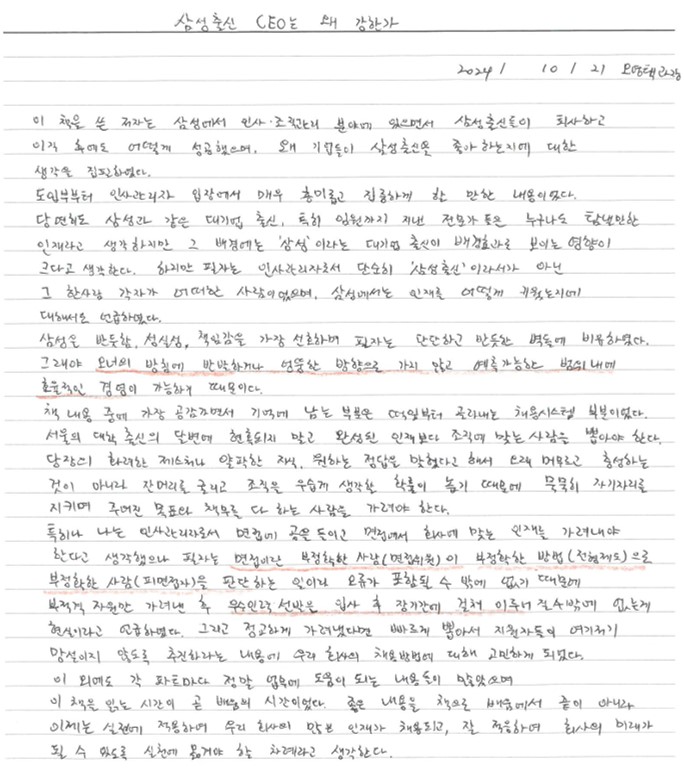 삼성출신 CEO는 왜 강한가
2024 / 10 / 21 오영택과장
이 책을 쓴 저자는 삼성에서 인사·조직관리 분야에 있으면서 삼성출신들이 퇴사하고
이직 후에도 어떻게 성공했으며, 왜 기업들이 삼성출신을 좋아하는지에 대한
생각을 집필하였다.
도입부부터 인사관리자 입장에서 매우 흥미롭고 집중하게 할 만한 내용이었다.
당연히도 삼성과 같은 대기업 출신, 특히 임원까지 지낸 전문가 등은 누구나도 탐낼만한
인재라고 생각하지만 그 배경에는 '삼성'이라는 대기업 출신이 배경효과로 보이는 영향이
크다고 생각한다. 하지만 필자는 인사관리자로서 단순히 '삼성출신'이라서가 아닌
그 한사람 각자가 어떠한 사람이었으며, 삼성에서는 인재를 어떻게 키웠는지에
대해서도 언급하였다.
삼성은 반듯함, 성실성, 책임감을 가장 선호하며 필자는 단단하고 반듯한 벽돌에 비유하였다.
그래야 오너의 방침에 반박하거나 엉뚱한 방향으로 가지 않고 예측가능한 범위내에
효율적인 경영이 가능하기 때문이다.
책 내용 중에 가장 공감가면서 기억에 남는 부분은 떡잎부터 골라내는 채용시스템 부분이었다.
서울의 대학 출신의 달변에 현혹되지 말고 완성된 인재보다 조직에 맞는 사람을 뽑아야 한다.
당장의 화려한 제스처나 얄팍한 지식, 원하는 정답을 맞췄다고 해서 오래 머무르고 충성하는
것이 아니라 잔머리를 굴리고 조직을 우습게 생각할 확률이 높기 때문에 묵묵히 자기자리를
지키며 주어진 목표와 책무를 다 하는 사람을 가려야 한다.
특히나 나는 인사관리자로서 면접에 공을 들이고 면접에서 회사에 맞는 인재를 가려내야
한다고 생각했으나 필자는 면접이란 부정확한 사람(면접위원)이 부정확한 방법(전형제도)으로
부정확한 사람(피면접자)을 판단하는 일이라 오류가 포함될 수 밖에 없기 때문에
부적격 자원만 가려낸 후 우수인력 선발은 입사 후 장기간에 걸쳐 이루어질수밖에 없는게
현실이라고 언급하였다. 그리고 정교하게 가려냈다면 빠르게 뽑아서 지원자들이 여기저기
망설이지 않도록 추진하라는 내용에 우리 회사의 채용방법에 대해 고민하게 되었다.
이 외에도 각 파트마다 정말 업무에 도움이 되는 내용들이 많았으며
이 책을 읽는 시간이 곧 배움의 시간이었다. 좋은 내용을 책으로 배움에서 끝이 아니라
이제는 실전에 적용하여 우리 회사의 많은 인재가 채용되고, 잘 적응하여 회사의 미래가
될 수 있도록 실천에 옮겨야 할 차례라고 생각한다.